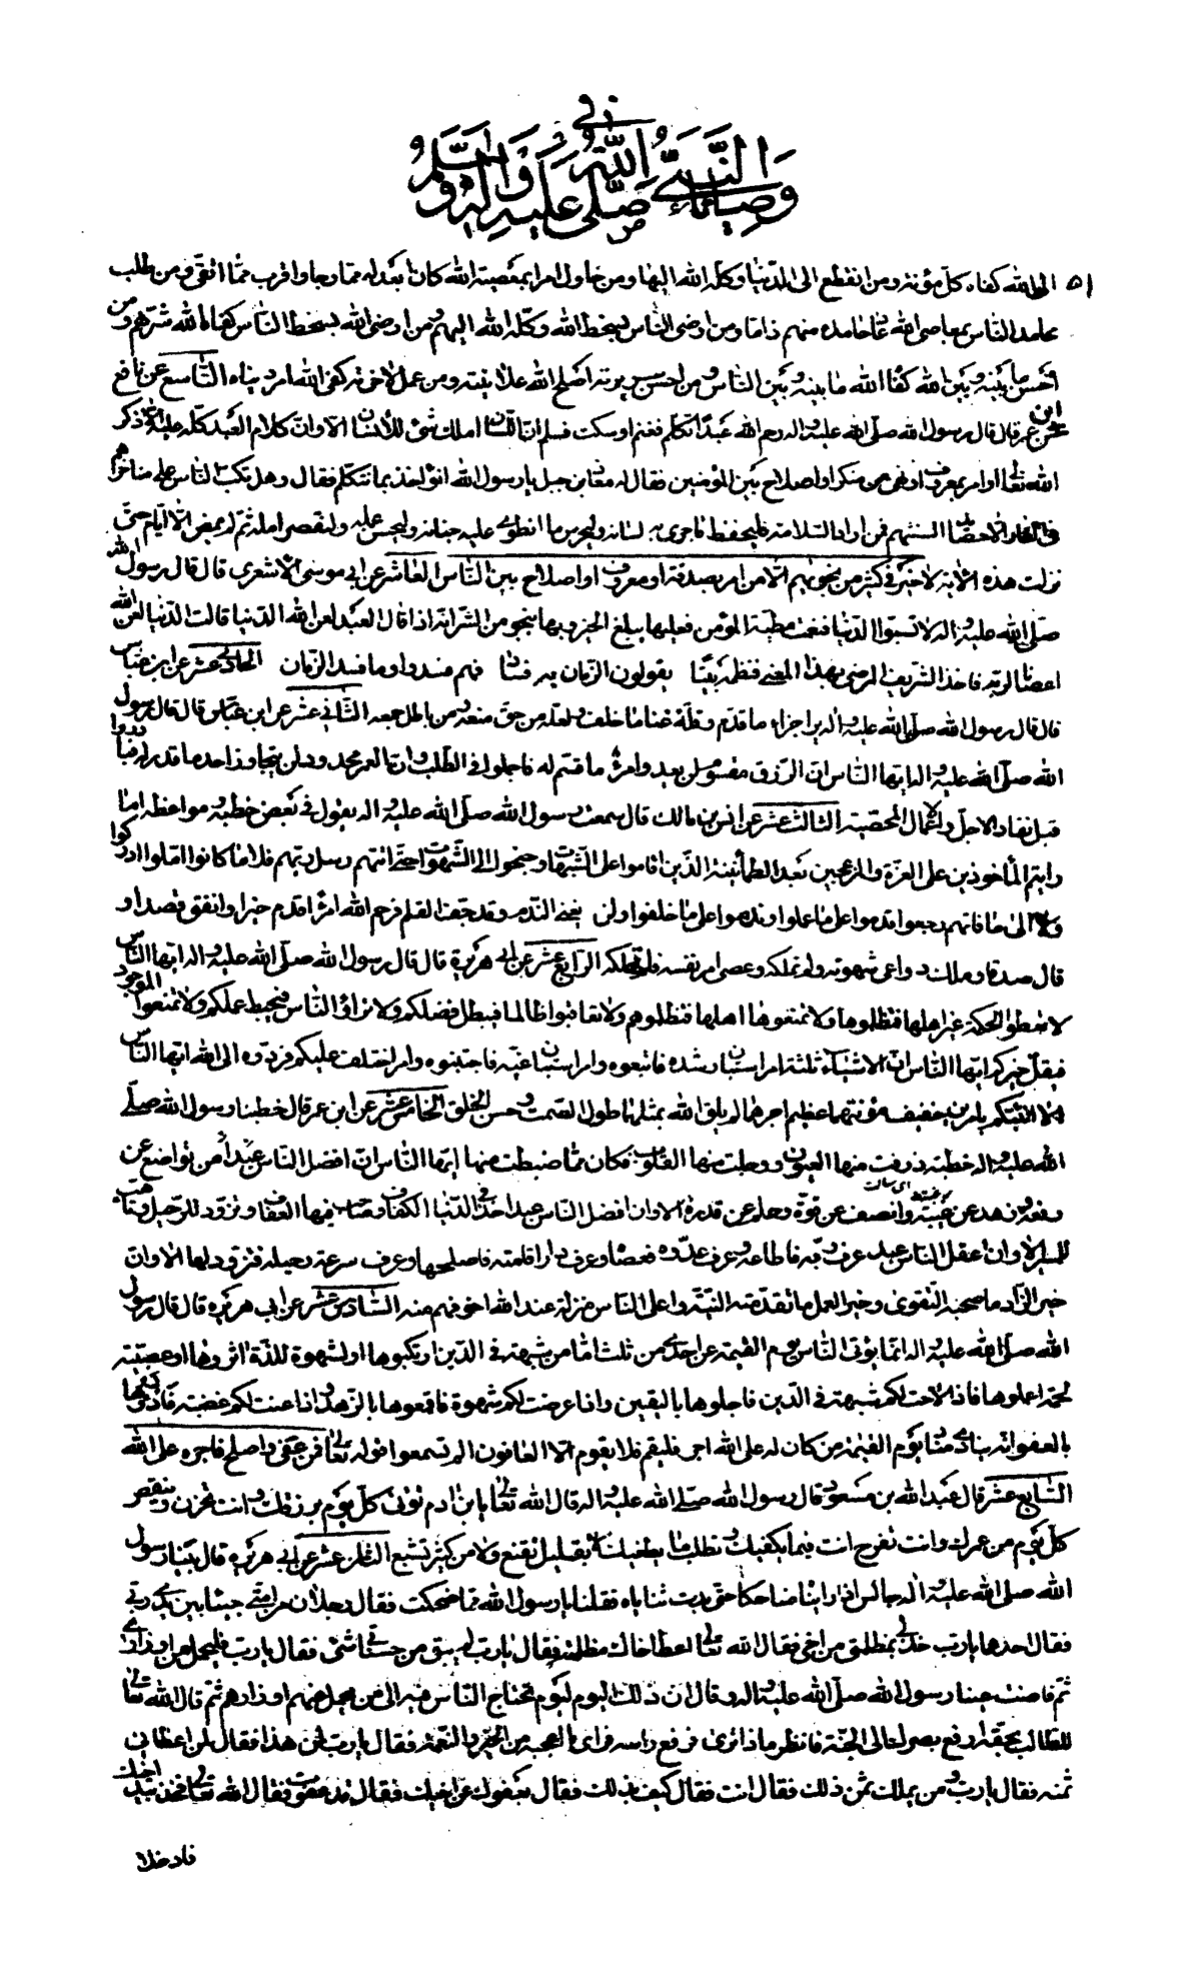 في
وَصِيَّاتِ النَّبِيِّ صَلَّى اللهُ عَلَيْهِ وَآلِهِ وَسَلَّمَ
٥١ الى الله كفاه كلّ مؤنة ومن انقطع الى الدّنيا وكله الله اليها ومن حاول امرا بمعصية الله كان ابعد له ممّا رجا واقرب ممّا اتقى ومن طلب
محامد النّاس بمعاصى الله عاد حامده منهم ذامّا ومن ارضى النّاس بسخط الله وكله الله اليهم ومن ارضى الله بسخط النّاس كفاه الله شرّهم ومن
احسن ما بينه وبين الله كفاه الله ما بينه وبين النّاس ومن احسن سريرته اصلح الله علانيته ومن عمل لآخرته كفى الله امر دنياه التّاسع عن نافع
عن ابن عمر قال قال رسول الله صلّى الله عليه واله رحم الله عبدًا تكلّم فغنم او سكت فسلم انّ اللّسان املك شئ للأنسان الا وان كلام العبد كلّه عليه الّا ذكر
الله تعالى او امر بمعروف او نهى عن منكر او اصلاح بين المؤمنين فقال له معاذ بن جبل يا رسول الله انؤاخذ بما نتكلّم فقال وهل تكبّ النّاس على مناخرهم
في النّار الّا حصائد السنتهم فمن اراد السّلامة فليحفظ ما جرى به لسانه وليحرس ما انطوى عليه جنانه وليحسن عمله وليقصر امله ثمّ لم يمض الّا ايّام حتّى
نزلت هذه الآية لا خير في كثير من نجويهم الّا من امر بصدقة او معروف او اصلاح بين النّاس العاشر عن ابي موسى الاشعرى قال قال رسول الله
صلّى الله عليه واله لا تسبّوا الدّنيا فنعمت مطيّة المؤمن فعليها يبلغ الخير وبها ينجو من الشّر انّه اذا قال العبد لعن الله الدّنيا قالت الدّنيا لعن الله
اعصانا لربّه فاخذ الشّريف الرضى بهذا المعنى فنظمه بيتًا يقولون الزّمان به فساد فهم فسدوا وما فسد الزّمان الحادى عشر عن ابن عبّاس
قال قال رسول الله صلّى الله عليه واله جزاء ما قدّم وقلّة غناء ما خلف ولعلّه من حقّ منعه ومن باطل جمعه الثّاني عشر عن ابن عبّاس قال قال رسول
الله صلّى الله عليه واله ايّها النّاس انّ الرّزق مقسوم لن يعدو امرؤ ما قسم له فاجملوا في الطّلب وانّ العمر محدود لن يتجاوز احد ما قدر له فبادروا
قبل نفاد الاجل والاعمال المحصيّة الثّالث عشر عن انس بن مالك قال سمعت رسول الله صلّى الله عليه واله يقول في بعض خطبه ومواعظه اما
رايتم المأخوذين على العزّة والمزعجين بعد الطّمأنينة الّذين اقاموا على الشّبهات وجنحوا الى الشّهوات حتّى اتتهم رسل ربّهم فلا ما كانوا امّلوا ادركوا
ولا الى ما فاتهم رجعوا قدموا على ما عملوا وندموا على ما خلفوا ولن يغنى النّدم وقد جفّ القلم فرحم الله امرأ قدم خيرا وانفق قصدا و
قال صدقا وملك دواعى شهوته ولم تملكه وعصى امر نفسه فلم تملكه الرّابع عشر عن ابي هريرة قال قال رسول الله صلّى الله عليه واله ايّها النّاس
لا تعطوا الحكمة غير اهلها فتظلموها ولا تمنعوها اهلها فتظلموهم ولا تعاقبوا ظالما فيبطل فضلكم ولا تراؤا النّاس فيحبط عملكم ولا تمنعوا الموجود
فيقلّ خيركم ايّها النّاس انّ الاشياء ثلثة امر استبان رشده فاتبعوه وامر استبان غيّه فاجتنبوه وامر اختلف عليكم فردّوه الى الله ايّها النّاس
الا انبّئكم بامرين خفيف مؤنتهما عظيم اجرهما لم يلق الله بمثلهما طول الصّمت وحسن الخلق الخامس عشر عن ابن عمر قال خطبنا رسول الله صلّى
الله عليه واله خطبة ذرفت منها العيون ووجلت منها القلوب فكان ممّا ضبطت منها ايّها النّاس انّ افضل النّاس عبدًا من تواضع عن
رفعة وزهد عن غنية وانصف عن قوّة وحلم عن قدرة الا وان افضل النّاس عبد اخذ في الدّنيا الكفاف وصاحب فيها العفاف وتزوّد للرّحيل وتأهّب
للمسير الا وان اعقل النّاس عبد عرف ربّه فاطاعه وعرف عدّوه فعصاه وعرف دار اقامته فاصلحها وعرف سرعة رحيله فتزوّد لها الا وان
خير الزّاد ما صحبه التّقوى وخير العمل ما تقدّمته النيّة واعلى النّاس منزلة عند الله اخوفهم منه السّادس عشر عن ابي هريرة قال قال رسول
الله صلّى الله عليه واله انّما يؤتى النّاس يوم القيمة عن احدى من ثلث امّا من شبهة في الدّين ارتكبوها او لشهوة للذّة اثروها او عصبيّة
لحميّة اعملوها فاذا لاحت لكم شبهة في الدّين فاجلوها باليقين واذا عرضت لكم شهوة فاقمعوها بالزّهد واذا عنت لكم غضبة فادرؤها
بالعفو انّه ينادى مناد يوم القيمة من كان له على الله اجر فليقم فلا يقوم الّا العافون الم تسمعوا قوله تعالى فمن عفى واصلح فاجره على الله
السّابع عشر قال عبد الله بن مسعود قال رسول الله صلّى الله عليه واله قال الله تعالى يا بن ادم تؤتى كلّ يوم برزقك وانت تحزن وينقص
كلّ يوم من عمرك وانت تفرح انت فيما يكفيك وتطلب ما يطغيك لا بقليل تقنع ولا من كثير تشبع الثّامن عشر عن ابي هريرة قال بينا رسول
الله صلى الله عليه واله جالس اذ رايناه ضاحكا حتى بدت ثناياه فقلنا يا رسول الله ممّا ضحكت فقال رجلان من امّتى جيئا بين يدى ربّى
فقال احدهما يا ربّ خذ لى بمظلمتى من اخى فقال الله تعالى اعط اخاك مظلمته فقال يا ربّ لم يبق من حسناتى شئ فقال يا ربّ فليحمل من اوزارى
ثمّ فاضت عينا رسول الله صلّى الله عليه واله وقال ان ذلك اليوم ليوم تحتاج النّاس فيه الى من يحمل عنهم اوزارهم ثمّ قال الله تعالى
للطّالب بحقّه ارفع بصرك الى الجنّة فانظر ماذا ترى فرفع راسه فراى ما اعجبه من الخير والنّعمة فقال يا ربّ لمن هذا فقال لمن اعطانى
ثمنه فقال يا ربّ ومن يملك ثمن ذلك فقال انت فقال كيف بذلك فقال بعفوك عن اخيك فقال قد عفوت فقال الله تعالى فخذ بيد اخيك
فادخلا